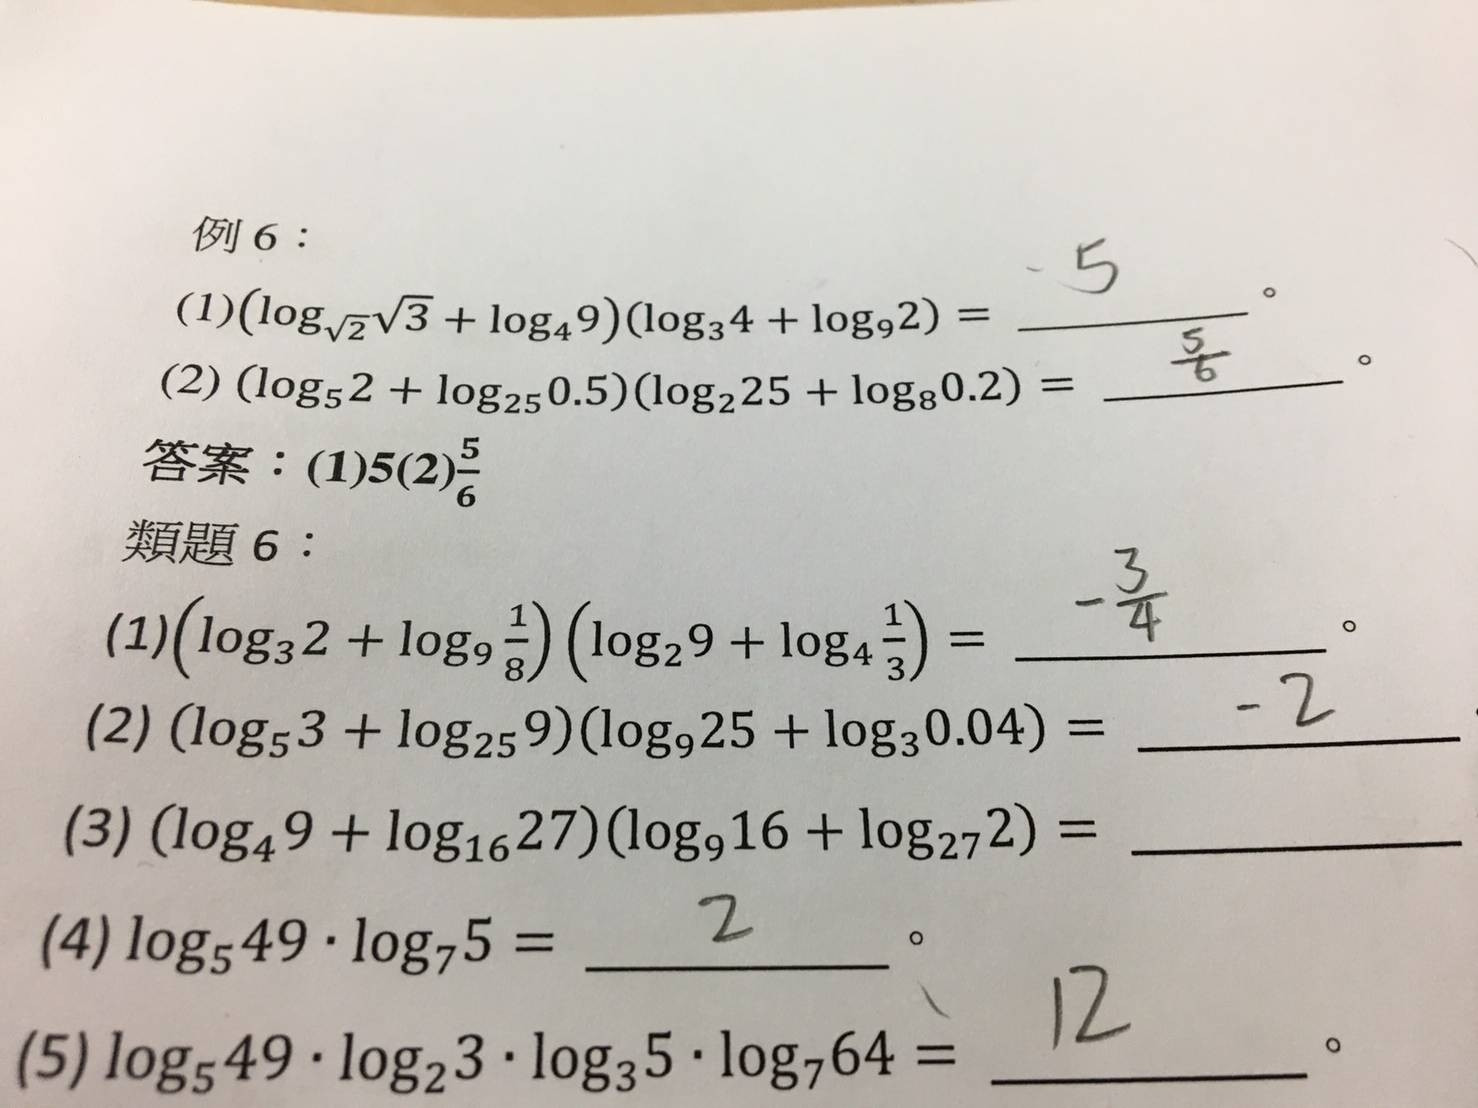 例 6：
(1)(log_{√2}√3 + log₄9)(log₃4 + log₉2) = 5。
(2) (log₅2 + log₂₅0.5)(log₂25 + log₈0.2) = 5/6。
答案：(1)5(2)5/6
類題 6：
(1)(log₃2 + log₉ 1/8)(log₂9 + log₄ 1/3) = -3/4。
(2) (log₅3 + log₂₅9)(log₉25 + log₃0.04) = -2
(3) (log₄9 + log₁₆27)(log₉16 + log₂₇2) =
(4) log₅49 · log₇5 = 2。
(5) log₅49 · log₂3 · log₃5 · log₇64 = 12。